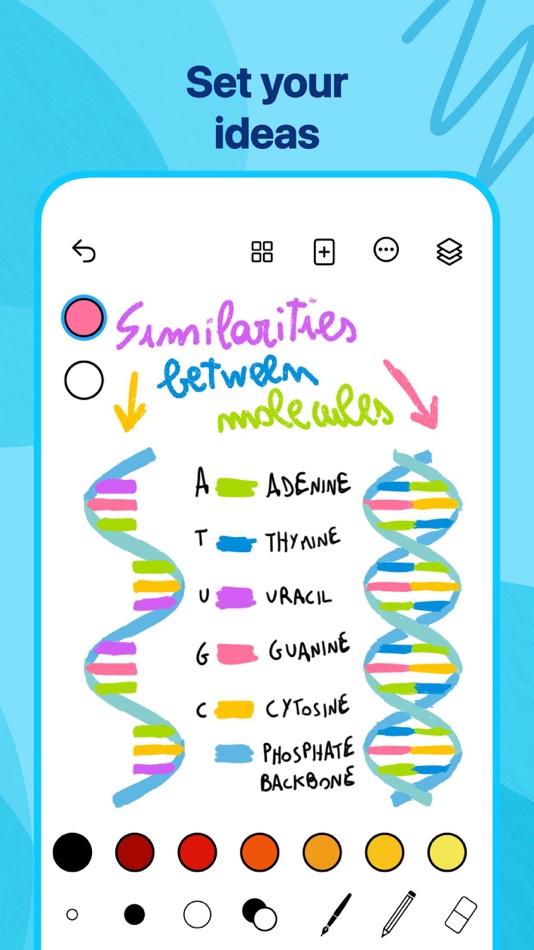 Set your
ideas
Similarities
between
molecules
A ADENINE
T THYMINE
U URACIL
G GUANINE
C CYTOSINE
PHOSPHATE
BACKBONE